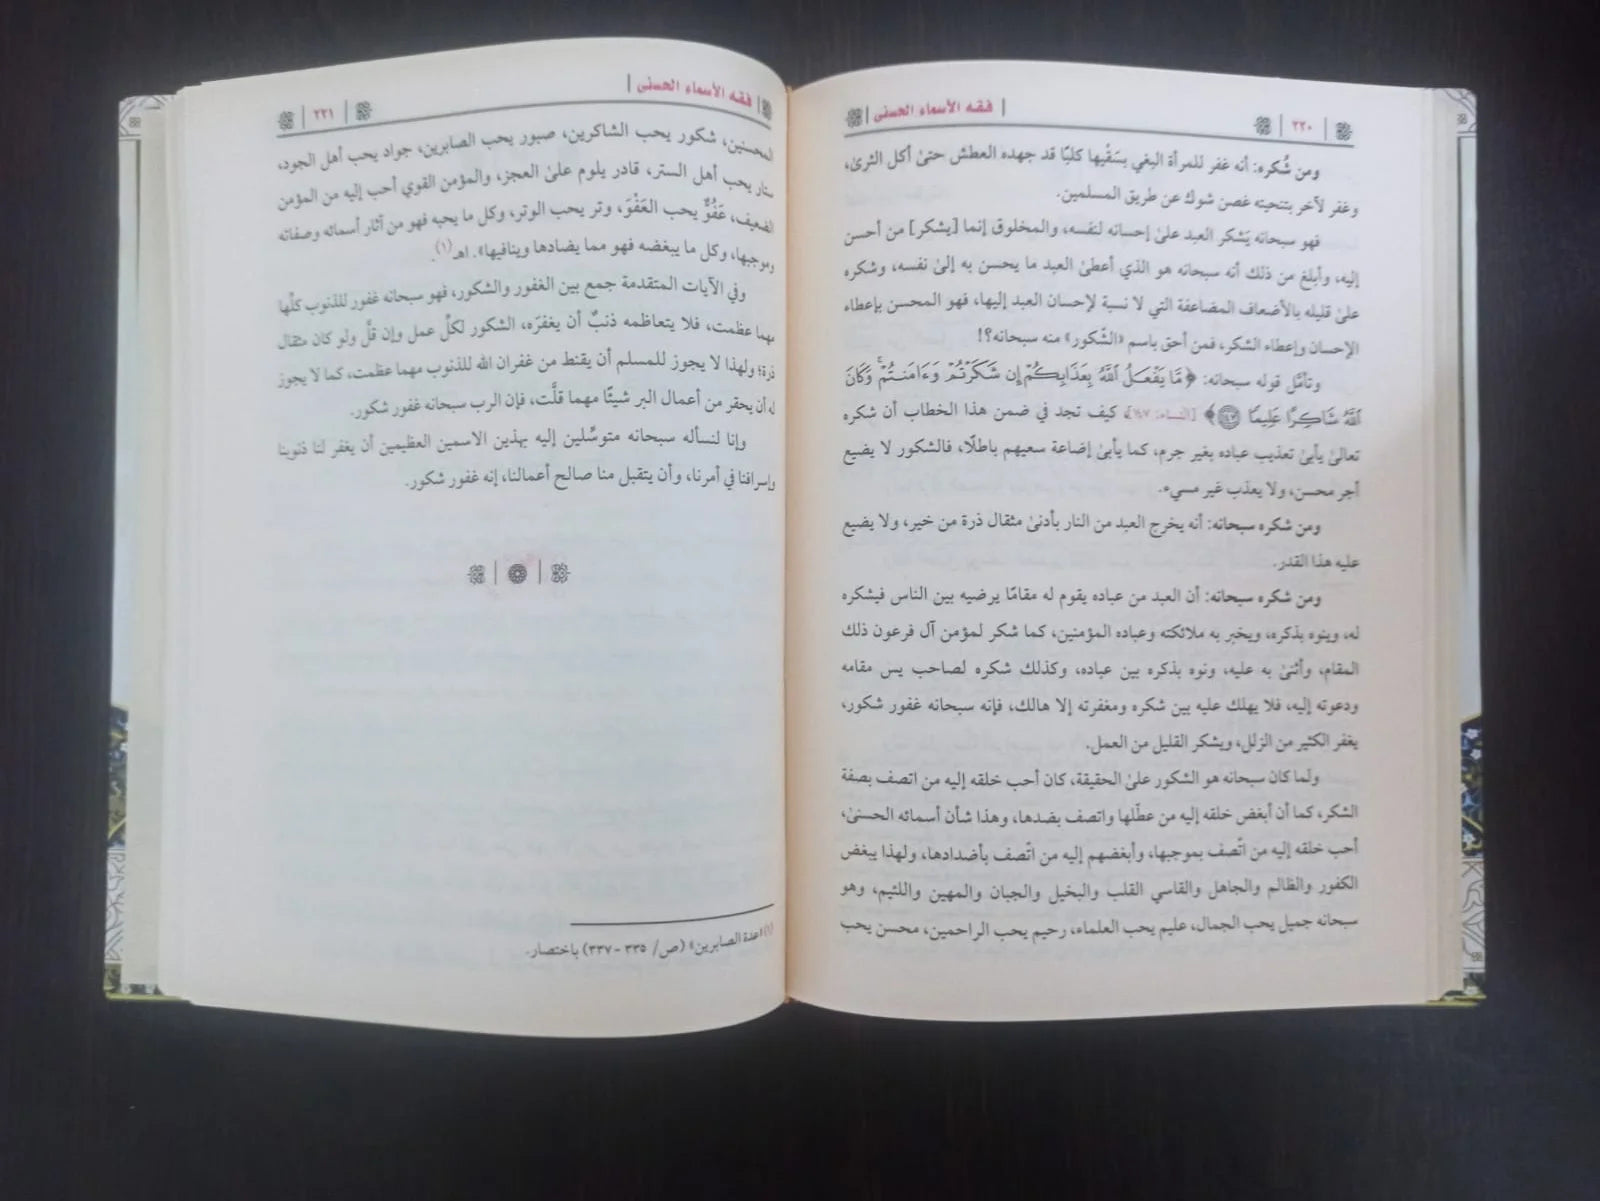 فقه الأسماء الحسنى
٢٢٠
ومن شُكره: أنه غفر للمرأة البغي بسَقْيها كلبًا قد جهده العطش حتىٰ أكل الثرىٰ،
وغفر لآخر بتنحيته غصن شوك عن طريق المسلمين.
فهو سبحانه يَشكر العبد علىٰ إحسانه لنفسه، والمخلوق إنما [يشكر] من أحسن
إليه، وأبلغ من ذلك أنه سبحانه هو الذي أعطىٰ العبد ما يحسن به إلىٰ نفسه، وشكره
علىٰ قليله بالأضعاف المضاعفة التي لا نسبة لإحسان العبد إليها، فهو المحسن بإعطاء
الإحسان وإعطاء الشكر، فمن أحق باسم «الشَّكور» منه سبحانه؟!
وتأمَّل قوله سبحانه: ﴿مَّا يَفْعَلُ ٱللَّهُ بِعَذَابِكُمْ إِن شَكَرْتُمْ وَءَامَنتُمْ ۚ وَكَانَ
ٱللَّهُ شَاكِرًا عَلِيمًا ١٤٧﴾ [النساء: ١٤٧]، كيف تجد في ضمن هذا الخطاب أن شكره
تعالىٰ يأبىٰ تعذيب عباده بغير جرم، كما يأبىٰ إضاعة سعيهم باطلًا، فالشكور لا يضيع
أجر محسن، ولا يعذب غير مسيء.
ومن شكره سبحانه: أنه يخرج العبد من النار بأدنىٰ مثقال ذرة من خير، ولا يضيع
عليه هذا القدر.
ومن شكره سبحانه: أن العبد من عباده يقوم له مقامًا يرضيه بين الناس فيشكره
له، وينوه بذكره، ويخبر به ملائكته وعباده المؤمنين، كما شكر لمؤمن آل فرعون ذلك
المقام، وأثنىٰ به عليه، ونوه بذكره بين عباده، وكذلك شكره لصاحب يس مقامه
ودعوته إليه، فلا يهلك عليه بين شكره ومغفرته إلا هالك، فإنه سبحانه غفور شكور،
يغفر الكثير من الزلل، ويشكر القليل من العمل.
ولما كان سبحانه هو الشكور علىٰ الحقيقة، كان أحب خلقه إليه من اتصف بصفة
الشكر، كما أن أبغض خلقه إليه من عطّلها واتصف بضدها، وهذا شأن أسمائه الحسنىٰ،
أحب خلقه إليه من اتّصف بموجبها، وأبغضهم إليه من اتّصف بأضدادها، ولهذا يبغض
الكفور والظالم والجاهل والقاسي القلب والبخيل والجبان والمهين واللئيم، وهو
سبحانه جميل يحب الجمال، عليم يحب العلماء، رحيم يحب الراحمين، محسن يحب
فقه الأسماء الحسنى
٢٢١
المحسنين، شكور يحب الشاكرين، صبور يحب الصابرين، جواد يحب أهل الجود،
ستار يحب أهل الستر، قادر يلوم علىٰ العجز، والمؤمن القوي أحب إليه من المؤمن
الضعيف، عَفُوٌّ يحب العَفْوَ، وتر يحب الوتر، وكل ما يحبه فهو من آثار أسمائه وصفاته
وموجبها، وكل ما يبغضه فهو مما يضادها وينافيها». اهـ(١).
وفي الآيات المتقدمة جمع بين الغفور والشكور، فهو سبحانه غفور للذنوب كلِّها
مهما عظمت، فلا يتعاظمه ذنبٌ أن يغفرَه، الشكور لكلِّ عمل وإن قلَّ ولو كان مثقال
ذرة؛ ولهذا لا يجوز للمسلم أن يقنط من غفران الله للذنوب مهما عظمت، كما لا يجوز
له أن يحقر من أعمال البر شيئًا مهما قلَّت، فإن الرب سبحانه غفور شكور.
وإنا لنسأله سبحانه متوسِّلين إليه بهذين الاسمين العظيمين أن يغفر لنا ذنوبنا
وإسرافنا في أمرنا، وأن يتقبل منا صالح أعمالنا، إنه غفور شكور.
(١) «عدة الصابرين» (ص/ ٣٣٥ - ٣٣٧) باختصار.